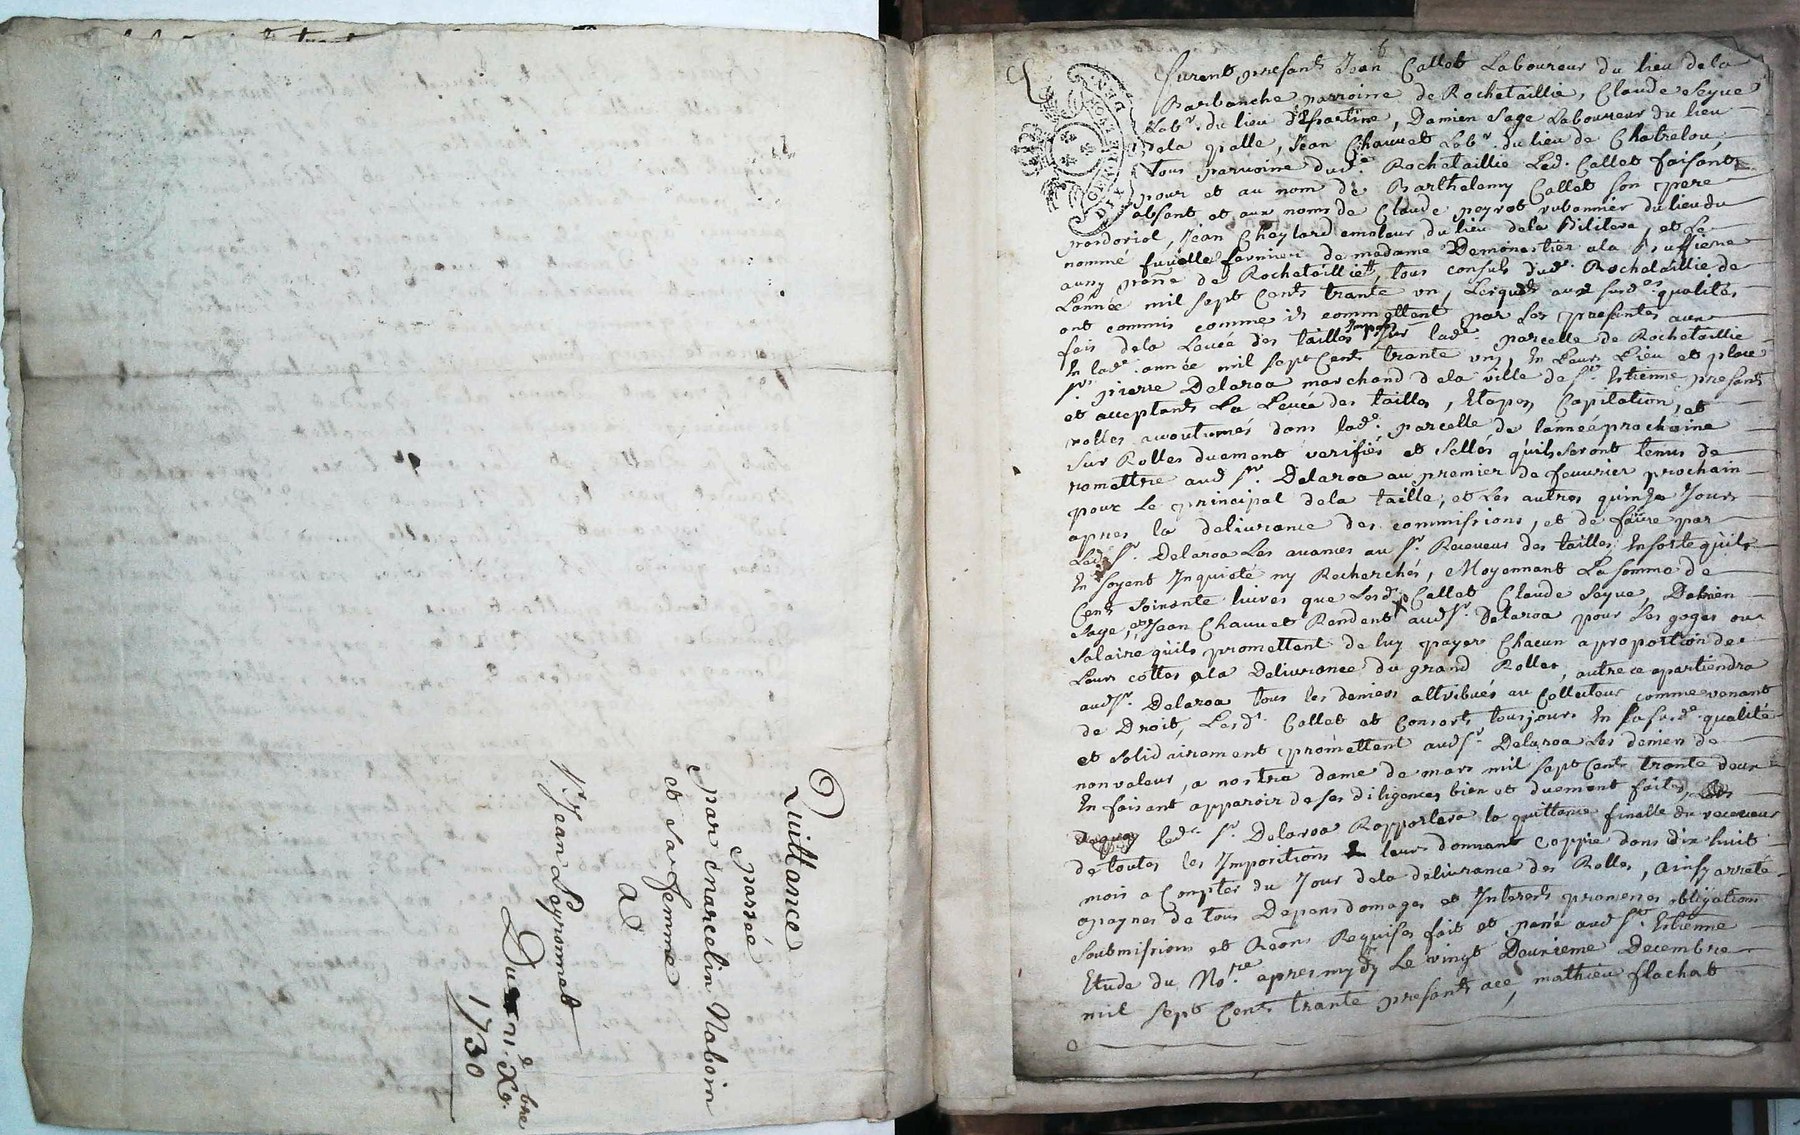 Quittance
passée
par marcelin Naboin
et sa femme
a
Sr. Jean Peyronnet
Du
1730
GEN. DE LYON
DIX DENIERS
Furent presents Jean Callet Laboureur du lieu dela
Barbanche parroisse de Rochetaillie, Claude Seyue
Labr. du lieu d'Essartine, Damien Sage Laboureur du lieu
dela palle, Jean Chauuet Labr. du lieu de Chatelou,
tous parroisse dud. Rochetaillie Led. Callet faisant
pour et au nom de Barthelemy Callet son pere
absent et aux noms de Claude peyrot rubannier du lieu du
Jean Cheylard emoleur du lieu dela et Le
nommé fuvelle fermier de madame Demonestier ala Ruffiere
aussy parse de Rochetaillie, tous consuls dud. Rochetaillie de
L'année mil sept Cents trante un, Lesquels aux susdes qualités
ont commis comme ils commettent par Les presentes aux
fais dela Leuée des tailles Imposés sur lade. parcelle de Rochetaillie
En lade. année mil sept Cents trante un, En Leurs Lieu et place
sr. pierre Delaroa marchand dela ville de St. Estienne present
et acceptant La Leuée des tailles, Etapes, Capitation, et
rolles acoutumés dans lade. parcelle de l'année prochaine
sur Rolles duement verifiés et sellés qu'ils seront tenus de
remettre aud. sr. Delaroa au premier de feuurier prochain
pour Le principal dela taille, et Les autres quinze Jours
apres la deliurance des commissions, et de faire par
Led. sr. Delaroa Les auances au sr. Receueur des tailles Ensorte quils
En soyent Inquieté ny Recherchés, Moyennant La somme de
Cent soixante liures que Lesd. Callet Claude Seyue, Damien
Sage, et Jean Chauuet Rendent aud. sr. Delaroa pour Ses gages ou
Salaire quils promettent de luy payer Chacun a proportion de
Leurs cottes ala Deliurance du grand Rolle, outre ce apartiendra
aud. sr. Delaroa tous les deniers attribués au Collecteur comme venant
de Droit, Lesd. Callet et Consorts tousjours En sasusde. qualité
et solidairement promettent aud. sr. Delaroa Les deniers de
non valeur, a nostre dame de mars mil sept Cents trante deux
En faisant apparoir de ses diligences bien et duement faites
led. sr. Delaroa Rapportera la quittance finalle du receueur
de toutes les Impositions leurs donnant coppie dans dix huit
mois a Compter du Jour dela deliurance des Rolles, Ainsy arreté
a paynes de tous Depens domages et Interests promesses obligations
Soubmissions et Reons Requises fait et passé aud. St. Estienne
Etude du Nore. apres midy Le vingt Deuxieme Decembre
mil sept Cents trante presents mathieu flachat